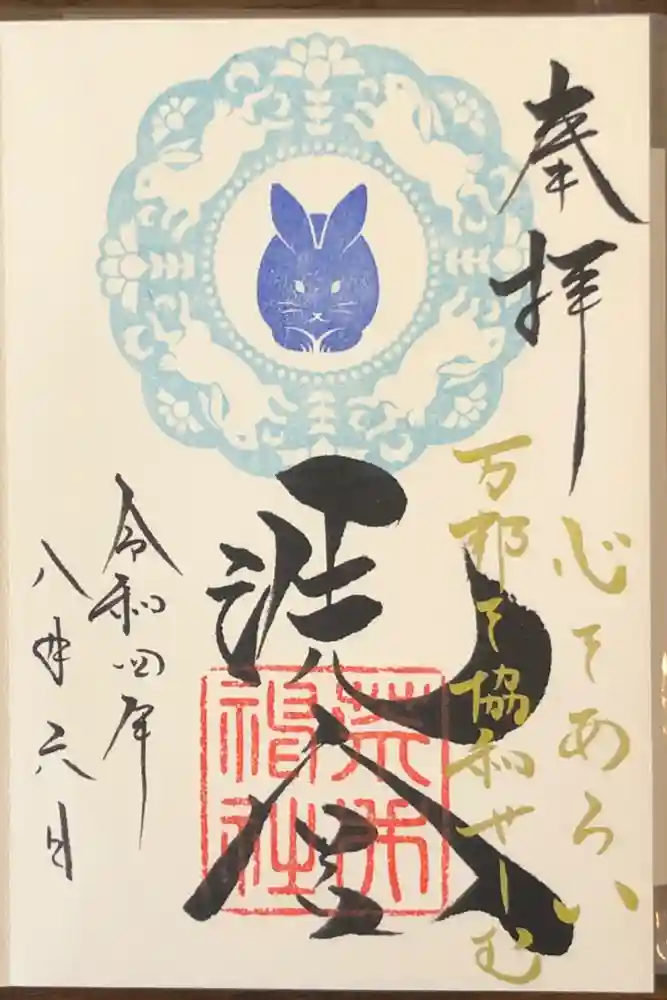 奉拝
心をあらい
万邦を協和せしむ
荒木
神社
令和四年
八月六日